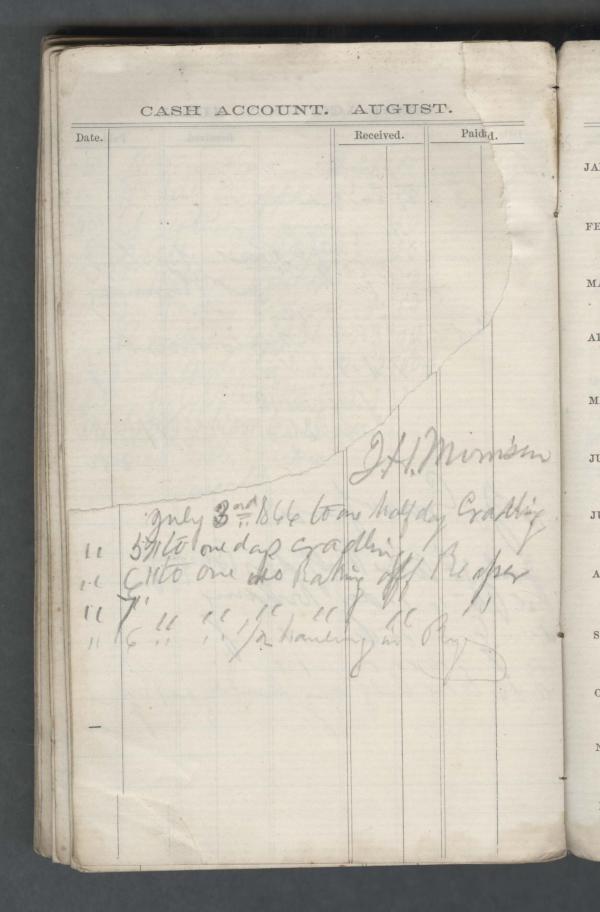 CASH ACCOUNT. AUGUST.
Date. Received. Paid.
J. H. Morrison
July 3rd 1866 to one half day Cradling
" 5" to one day cradling
" 6" to one do Raking off Reaper
" 7" " " " " " "
" 6 " " 1/2 hauling in Rye
JA
FE
MA
AP
MA
JU
JU
A
S
O
N